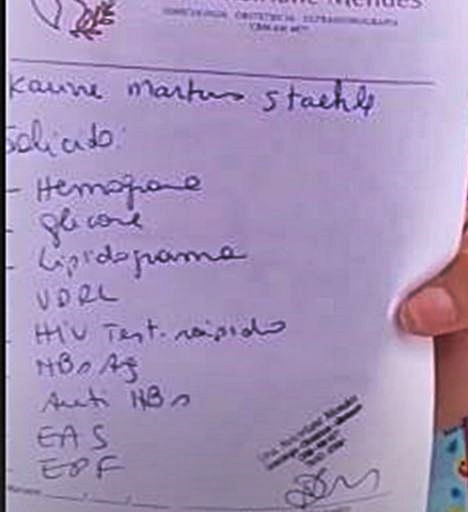 Mendes
GINECOLOGIA OBSTETRÍCIA ULTRASSONOGRAFIA
Karine Martins Staehle
Solicito:
- Hemograma
- glicose
- Lipidograma
VDRL
- HIV Test. rápido
- HBsAg
- Anti HBs
- EAS
- EPF